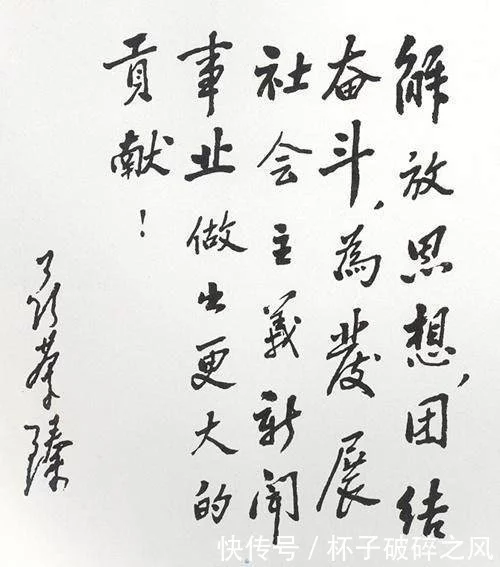 解放思想,团结
奋斗,為發展
社会主義新闻
事业做出更大的
貢献!
快传号/杯子破碎之风